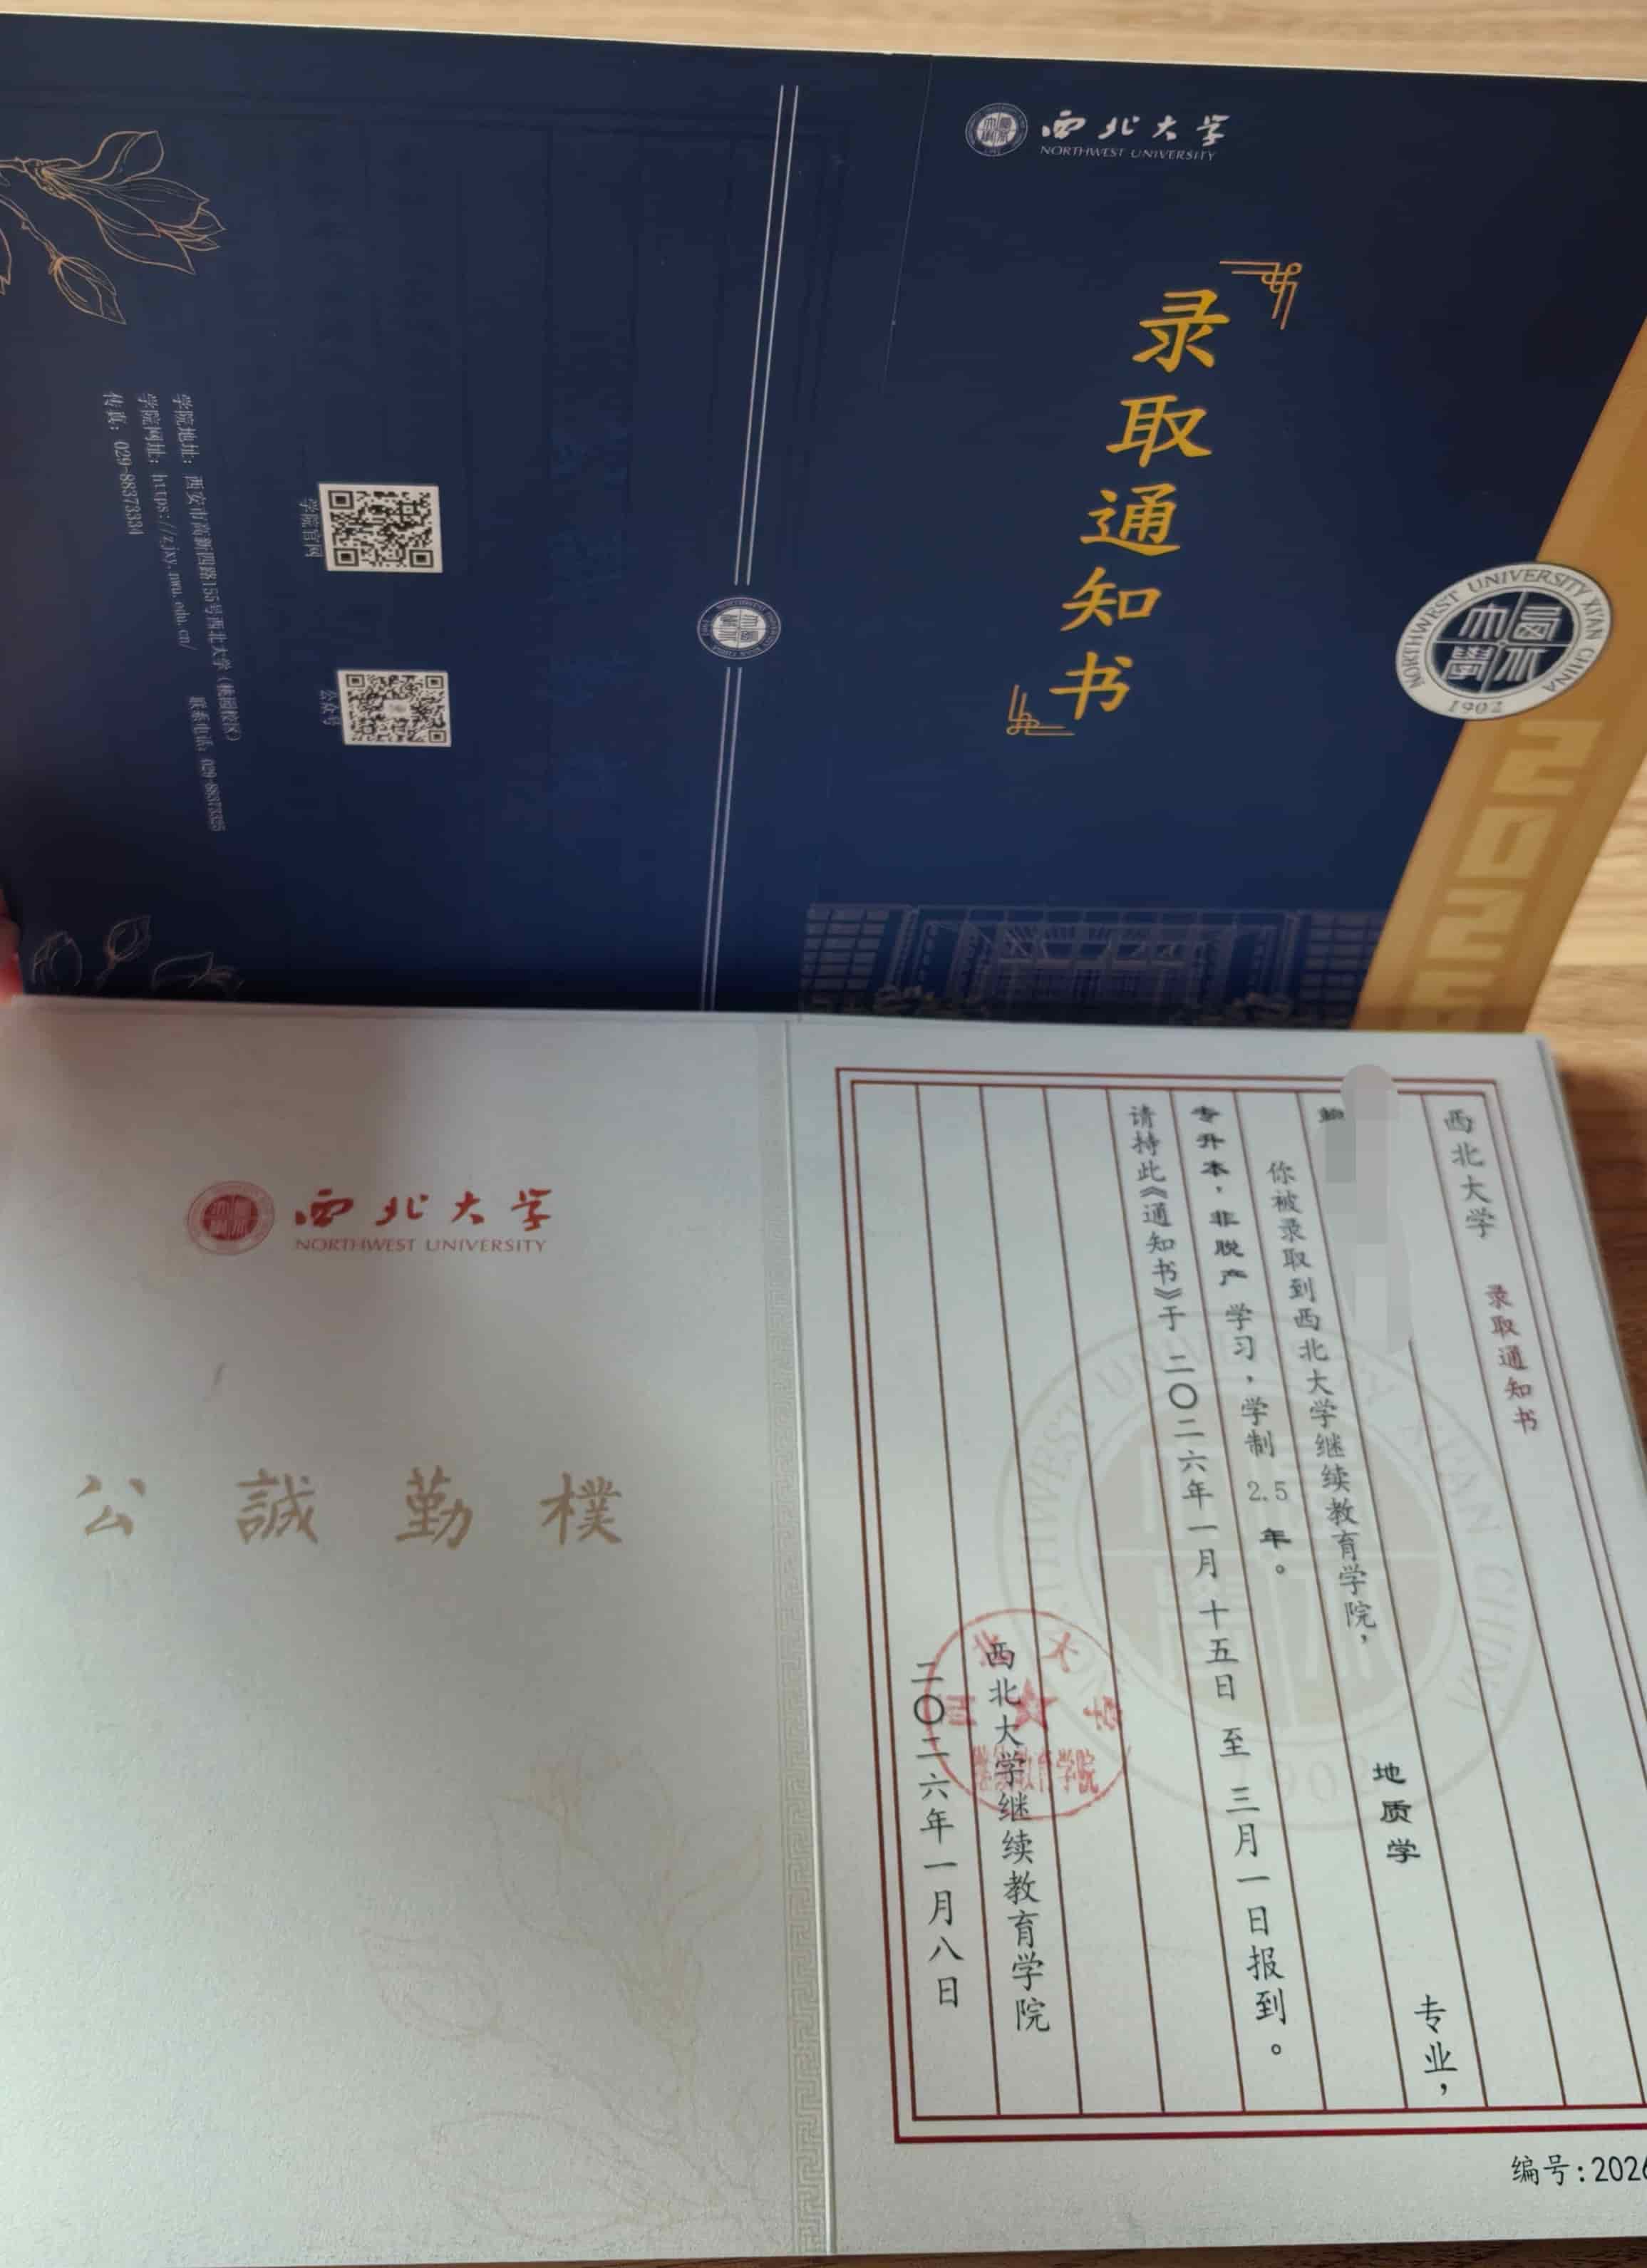 西北大学
NORTHWEST UNIVERSITY
录取通知书
NORTHWEST UNIVERSITY XI'AN CHINA
1902
202
学院官网
公众号
学院地址：西安市高新四路155号西北大学（桃园校区）
联系电话：029-88373325
学院网址：https://zjxy.nwu.edu.cn/
传真：029-88373334
西北大学
NORTHWEST UNIVERSITY
公誠勤樸
西北大学 录取通知书
你被录取到西北大学继续教育学院， 地质学 专业，
专升本，非脱产 学习，学制 2.5 年。
请持此《通知书》于 二〇二六年一月十五日 至 三月一日报到。
西北大学继续教育学院
二〇二六年一月八日
西北大学
继续教育学院
编号:2026